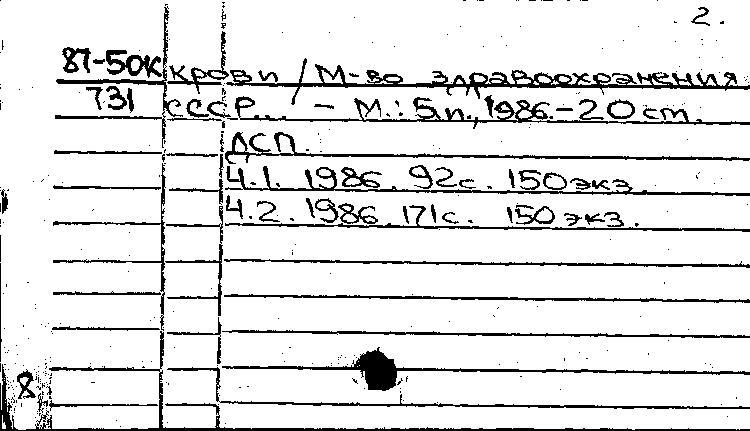 2.
87-50к крови / М-во здравоохранения
731 СССР... - М.: Б.и., 1986.-20 ст.
ДСП.
Ч.1. 1986. 92с. 150 экз.
Ч.2. 1986. 171с. 150 экз.
8